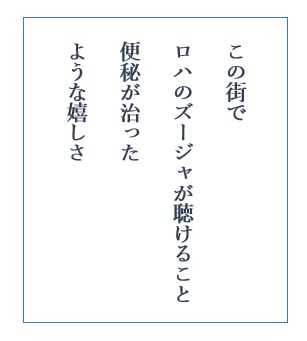 この街で
ロハのズージャが聴けること
便秘が治った
ような嬉しさ